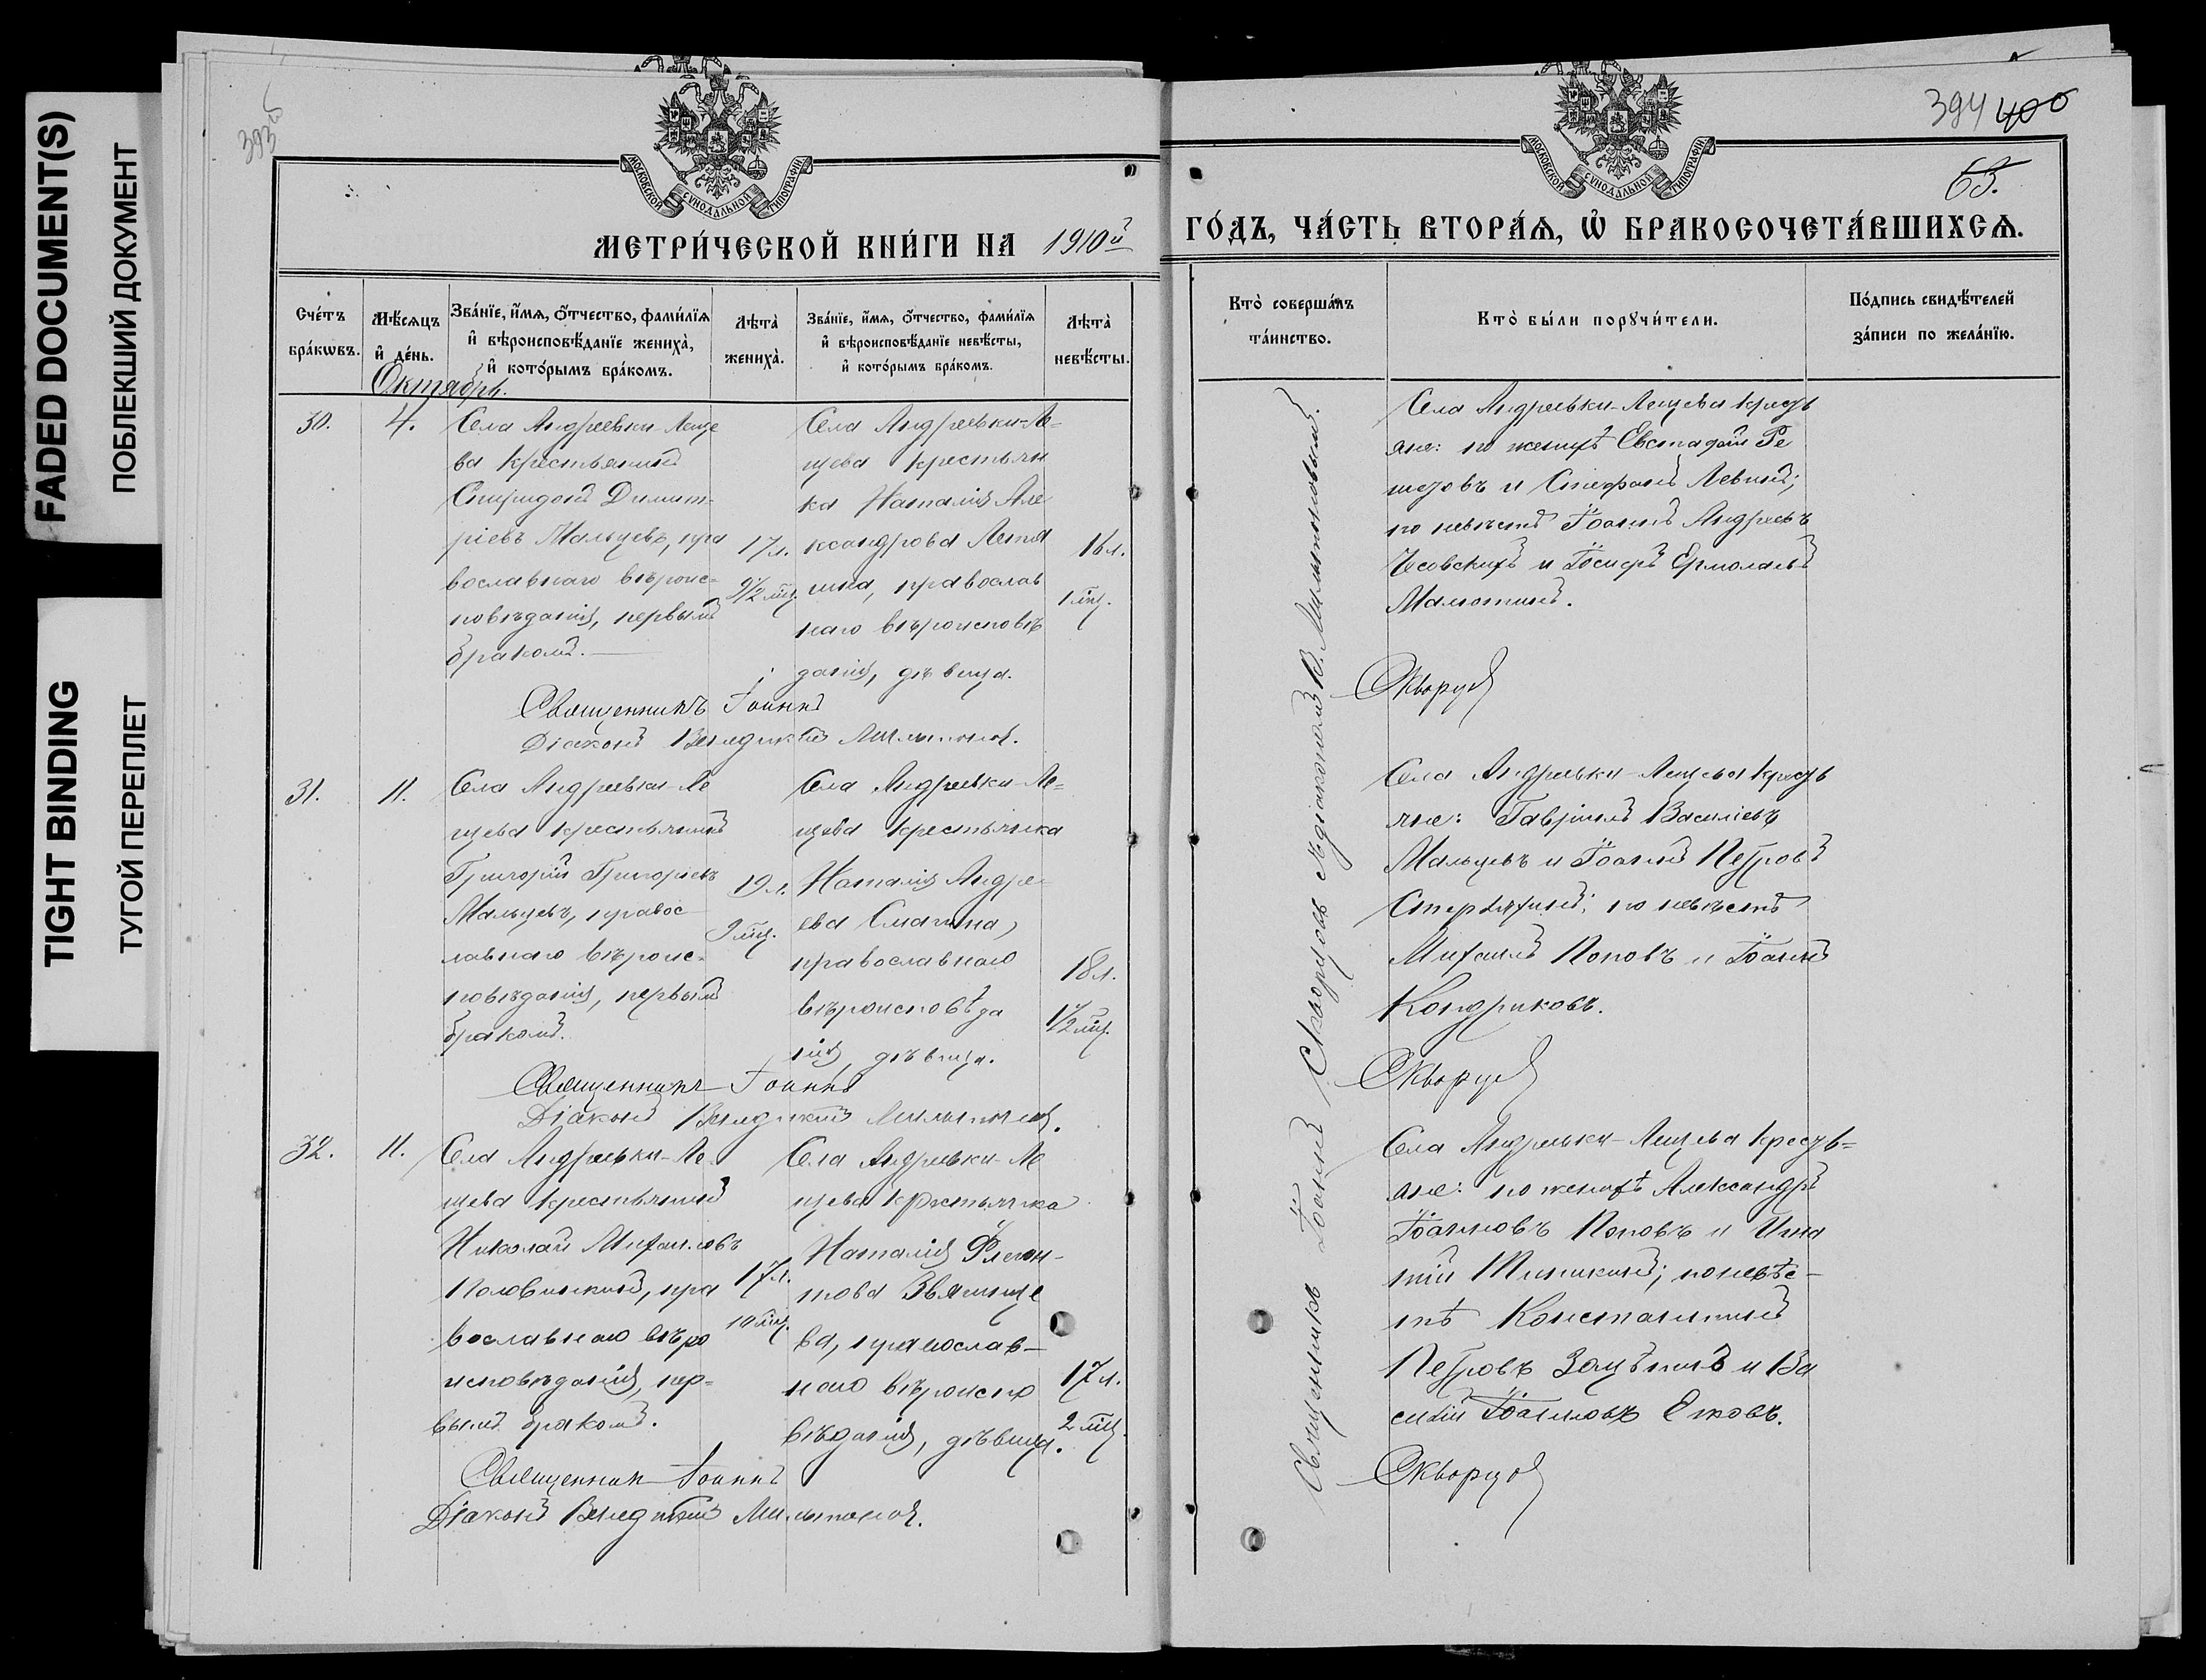 FADED DOCUMENT(S)
ПОБЛЕКШИЙ ДОКУМЕНТ
TIGHT BINDING
ТУГОЙ ПЕРЕПЛЕТ
393
МОСКОВСКОЙ СѴНОДАЛЬНОЙ ТИПОГРАФІИ
МЕТРИ́ЧЕСКОЙ КНИ́ГИ НА 1910й
Сче́тъ бра́ковъ.
Мѣ́сяцъ и҆ де́нь.
Зва́нїе, и҆́мѧ, ѻ҆́тчество, фами́лїѧ и҆ вѣроисповѣ́данїе жениха̀, и҆ кото́рымъ бра́комъ.
Лѣта̀ жениха̀.
Зва́нїе, и҆́мѧ, ѻ҆́тчество, фами́лїѧ и҆ вѣроисповѣ́данїе невѣ́сты, и҆ кото́рымъ бра́комъ.
Лѣта̀ невѣ́сты.
Октябрь.
30.
4.
Села Андреевки-Леще
ва крестьянинъ
Спиридонъ Димит-
ріевъ Мальцевъ, пра
вославнаго вѣроис-
повѣданія, первымъ
бракомъ.
17 л.
9½ мѣс.
Села Андреевки-Ле=
щева крестьян
ка Наталія Але
ксандрова
православ
наго вѣроисповѣ
данія, дѣвица.
16 л.
1 мѣс.
Священникъ Іоаннъ
Діаконъ Венедиктъ Мильтоновъ.
31.
11.
Села Андреевки-Ле
щева крестьянинъ
Григорій Григорьевъ
Мальцевъ, правос
лавнаго вѣроис-
повѣданія, первымъ
бракомъ.
19 л.
9 мѣс.
Села Андреевки-Ле=
щева крестьянка
Наталія Андре-
ева Смагина,
православнаго
вѣроисповѣда
нія, дѣвица.
18 л.
1½ мѣс.
Священникъ Іоаннъ
Діаконъ Венедиктъ Мильтоновъ.
32.
11.
Села Андреевки-Ле-
щева крестьянинъ
Николай Михаиловъ
Половинкинъ, пра
вославнаго вѣро
исповѣданія, пер=
вымъ бракомъ.
17 л.
10 мѣс.
Села Андреевки-Ле
щева крестьянка
Наталія Флегон-
това Звягинце
ва, православ-
наго вѣроиспо
вѣданія, дѣвица.
17 л.
2 мѣс.
Священник Іоаннъ
Діаконъ Венедиктъ Мильтоновъ.
394 400
63.
МОСКОВСКОЙ СѴНОДАЛЬНОЙ ТИПОГРАФІИ
ГО́ДЪ, ЧА́СТЬ ВТОРА́Ѧ, Ѽ БРАКОСОЧЕТА́ВШИХСѦ.
Кто̀ соверша́лъ та́инство.
Кто̀ бы́ли порꙋчи́тели.
По́дпись свидѣ́телей за́писи по жела́нїю.
Священникъ Іоаннъ Скворцовъ съ діакономъ В. Мильтоновымъ.
Села Андреевки-Лещева кресть
яне: по женихѣ Евстафій Ре
шетовъ и Стефанъ Левинъ;
по невѣстѣ Іоаннъ Андреевъ
Чесовскихъ и Іосифъ Ермолаевъ
Малютинъ.
Скворцов
Села Андреевки-Лещева кресть
яне: Гавріилъ Василіевъ
Мальцевъ и Іоаннъ Петровъ
по невѣстѣ
Михаилъ Поповъ и Іоаннъ
Кондриковъ.
Скворцов
Села Андреевки-Лещева кресть=
яне: по женихѣ Александръ
Іоанновъ Поповъ и Игна
тій по невѣс-
тѣ Константинъ
Петровъ Зацѣпинъ и Ва
силій Іоанновъ Ежовъ.
Скворцов